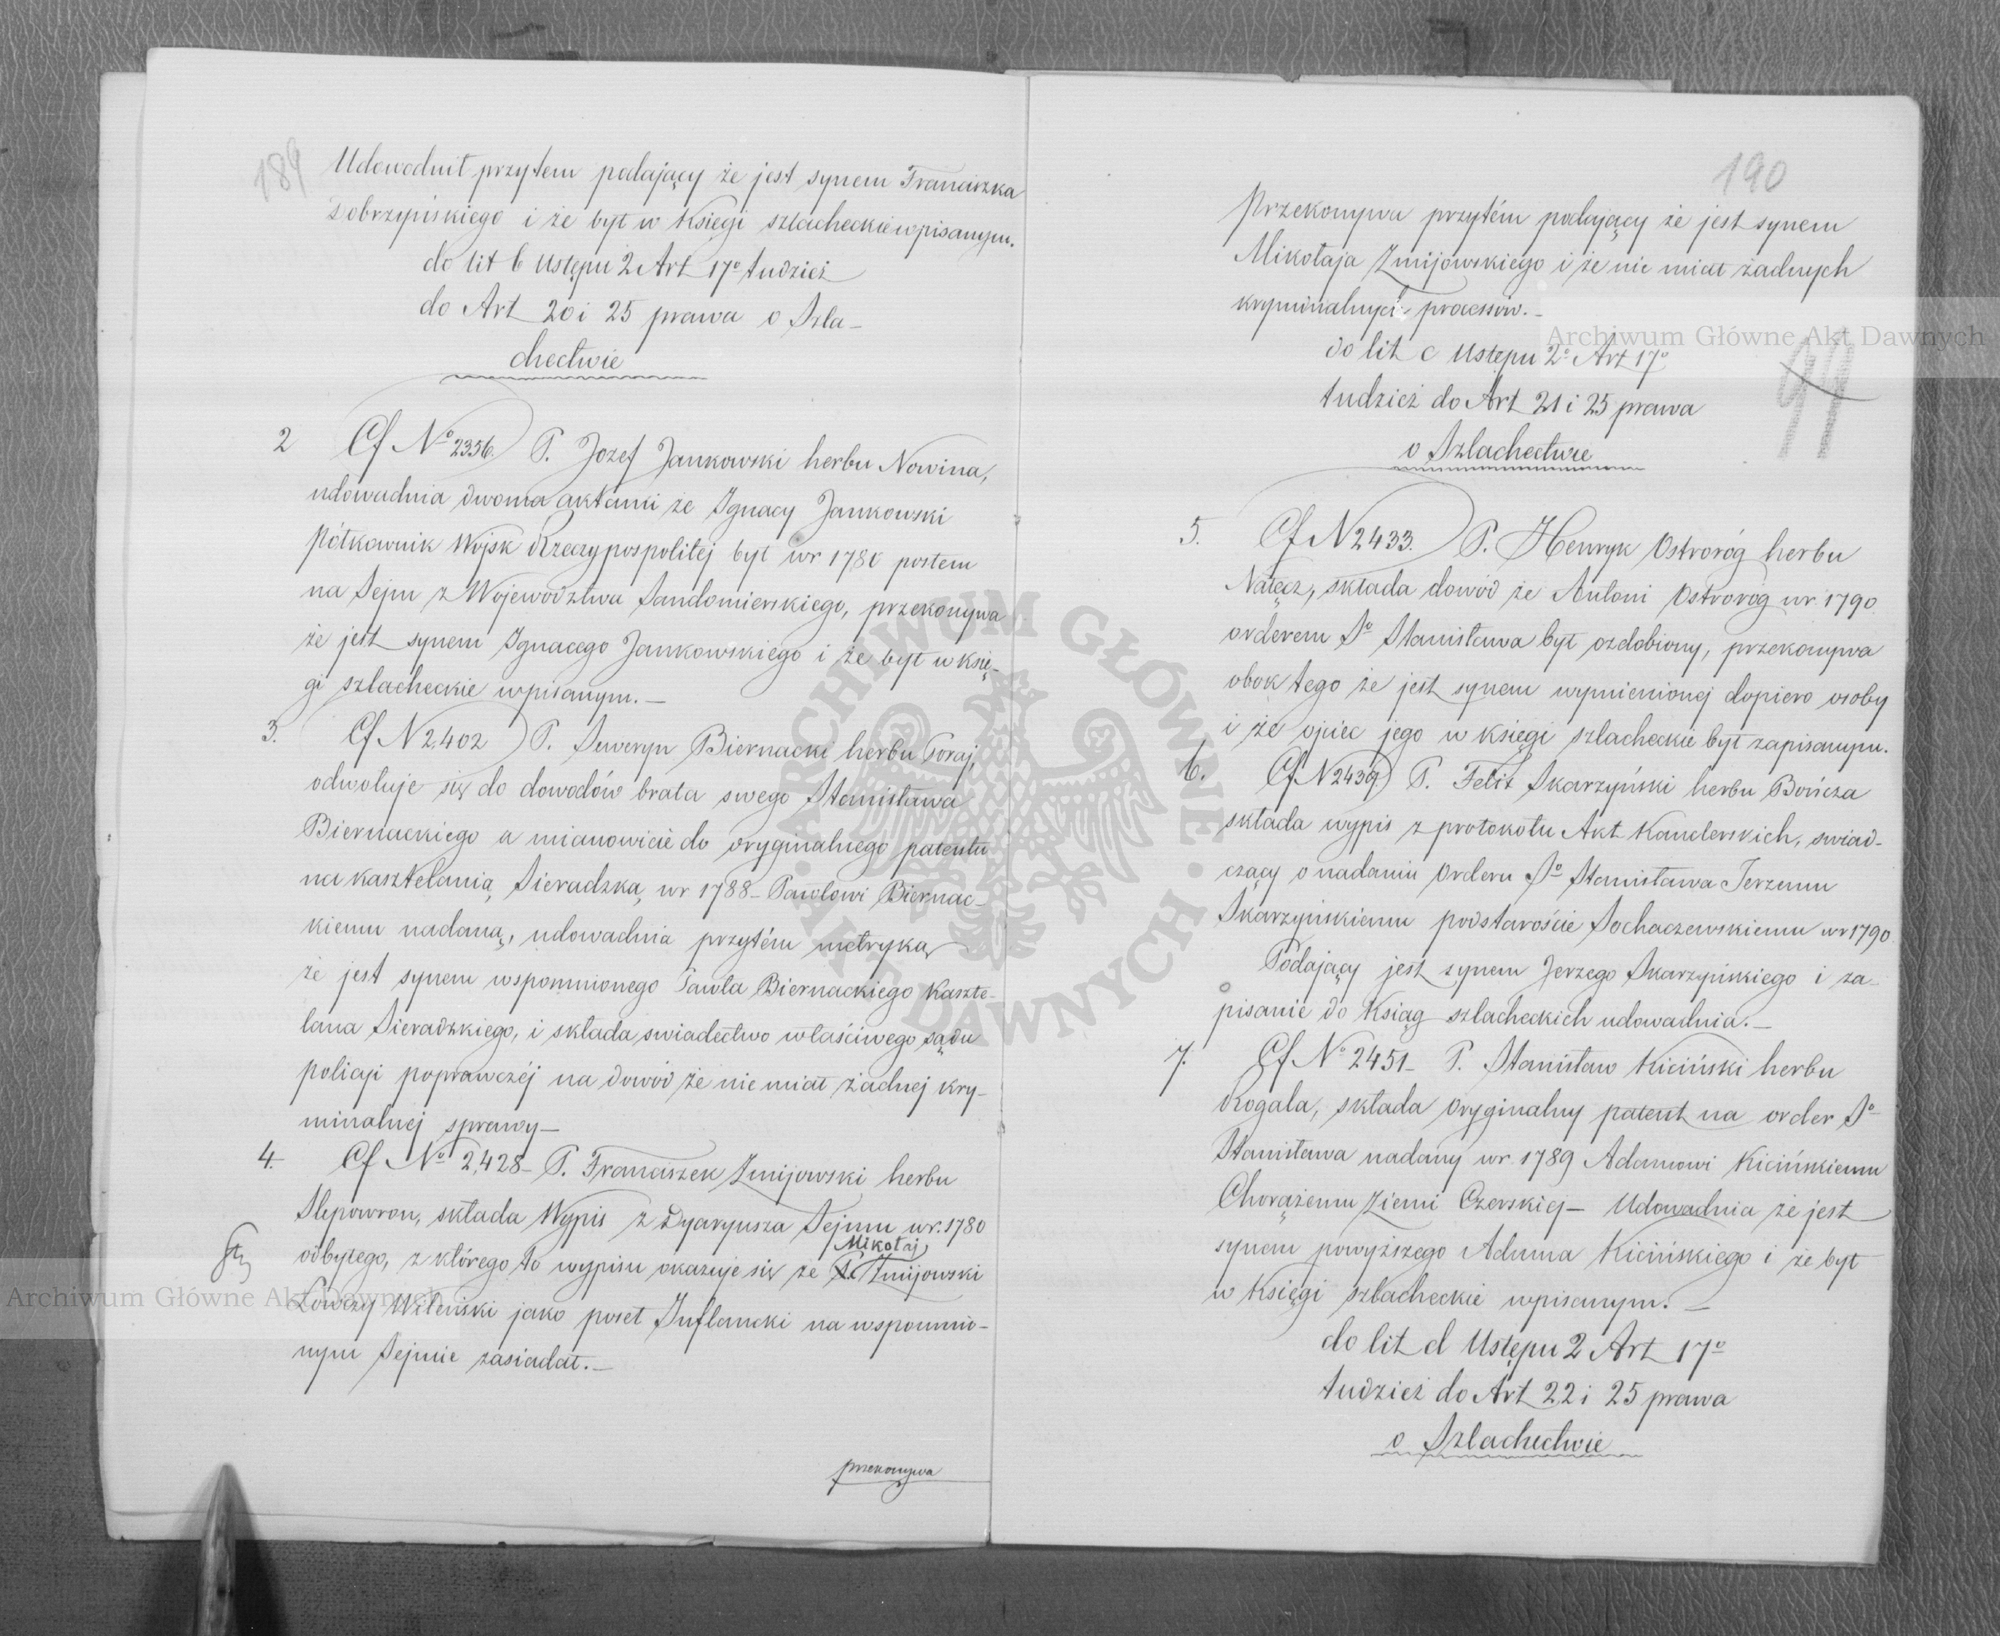 189
Udowodnił przytem podający że jest synem Franciszka
Dobrzyńskiego i że był w Księgi szlacheckie wpisanym.
do lit b Ustępu 2 Art 17º tudzież
do Art 20 i 25 prawa o Szla-
chectwie
2 Cf Nº 2356. P. Jozef Jankowski herbu Nowina,
udowadnia dwoma aktami że Ignacy Jankowski
Półkownik Wojsk Rzeczypospolitej był w r 1780 posłem
na Sejm z Województwa Sandomierskiego, przekonywa
że jest synem Ignacego Jankowskiego i że był w księ-
gi szlacheckie wpisanym.—
3. Cf N 2402 P. Seweryn Biernacki herbu Poraj,
odwołuje się do dowodów brata swego Stanisława
Biernackiego a mianowicie do oryginalnego patentu
na kasztelanią Sieradzką w r 1788 – Pawłowi Biernac-
kiemu nadaną, udowadnia przytém metryką
że jest synem wspomnionego Pawła Biernackiego Kaszte-
lana Sieradzkiego, i składa swiadectwo właściwego sądu
policyi poprawczéj na dowód że nie miał żadnej kry-
minalnej sprawy—
4. Cf Nº 2,428 – P. Franciszek Żmijowski herbu
Slepowron, składa Wypis z Dyaryusza Sejmu w r. 1780
odbytego, z którego to wypisu okazuje się że Mikołaj Żmijowski
Łowczy Wileński jako poseł Inflancki na wspomnio-
nym Sejmie zasiadał.—
przekonywa
190
Przekonywa przytém podający że jest synem
Mikołaja Żmijowskiego i że nie miał żadnych
kryminalnych processów.—
do lit c Ustępu 2º Art 17º
tudzież do Art 21 i 25 prawa
o Szlachectwie
5. Cf N 2433. P. Henryk Ostroróg herbu
Nałęcz, składa dowód że Antoni Ostroróg w r. 1790
orderem Sº Stanisława był ozdobiony, przekonywa
obok tego że jest synem wymienionej dopiero osoby
i że ojciec jego w księgi szlacheckie był zapisanym.
6. Cf N 2439. P. Felix Skarzyński herbu Bończa
składa wypis z protokołu Akt Kanclerskich, swiad-
czący o nadaniu Orderu Sº Stanisława Jerzemu
Skarzyńskiemu podstaroście Sochaczewskiemu w r 1790
Podający jest synem Jerzego Skarzyńskiego i za-
pisanie do Ksiąg szlacheckich udowadnia.—
7. Cf Nº 2451 – P. Stanisław Kiciński herbu
Rogala, składa oryginalny patent na order Sº
Stanisława nadany w r. 1789 Adamowi Kicińskiemu
Chorążemu Ziemi Czerskiej – Udowadnia że jest
synem powyższego Adama Kicińskiego i że był
w Księgi szlacheckie wpisanym.—
do lit d Ustępu 2 Art 17º
tudzież do Art 22 i 25 prawa
o Szlachectwie
Archiwum Główne Akt Dawnych
Archiwum Główne Akt Dawnych
ARCHIWUM GŁÓWNE • AKT DAWNYCH •